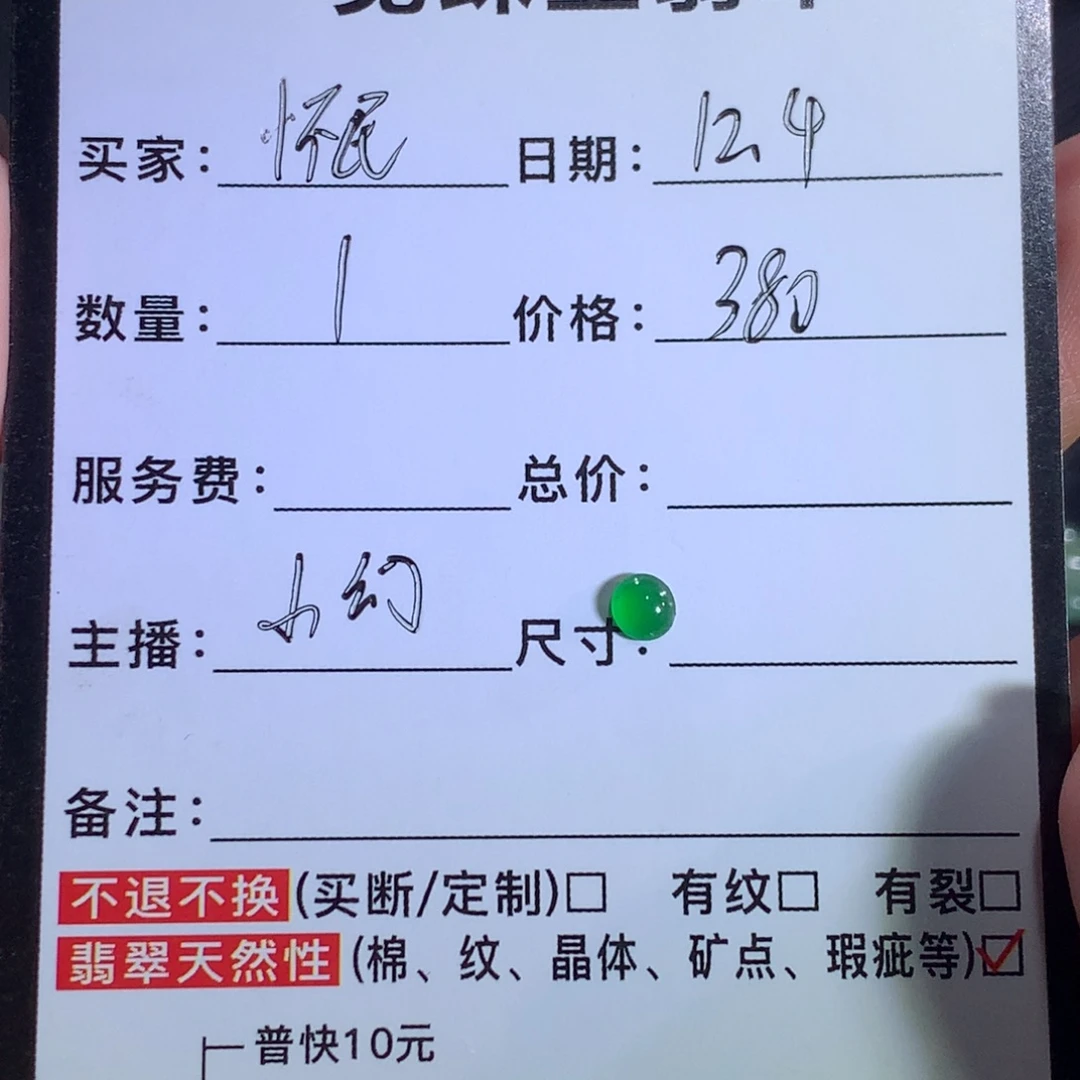 买家：怀民 日期：12.4
数量：1 价格：380
服务费： 总价：
主播：小幻 尺寸：
备注：
不退不换(买断/定制)□ 有纹□ 有裂□
翡翠天然性(棉、纹、晶体、矿点、瑕疵等)☑
普快10元